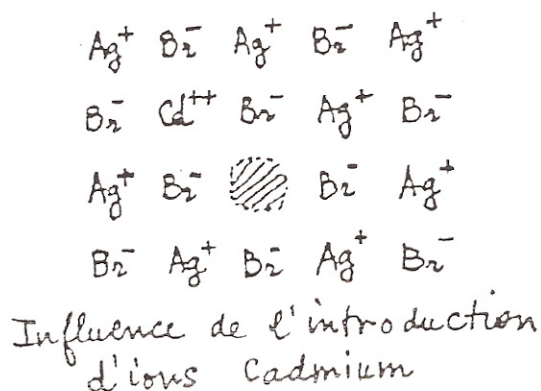 Ag⁺ Br⁻ Ag⁺ Br⁻ Ag⁺
Br⁻ Cd⁺⁺ Br⁻ Ag⁺ Br⁻
Ag⁺ Br⁻ Br⁻ Ag⁺
Br⁻ Ag⁺ Br⁻ Ag⁺ Br⁻
Influence de l'introduction
d'ions Cadmium